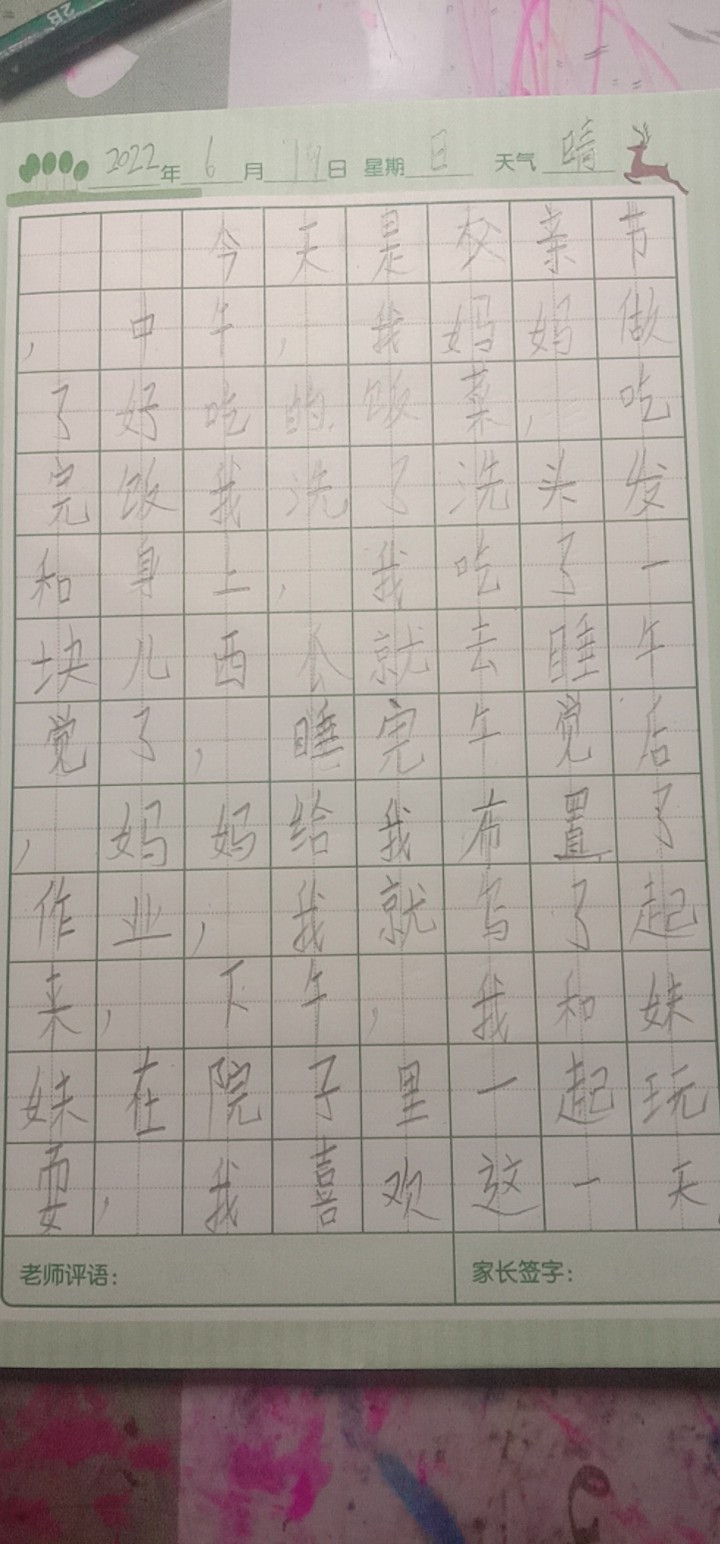 2B
2022年6月19日 星期日 天气 晴
今天是父亲节
，中午，我妈妈做
了好吃的饭菜，吃
完饭我洗了洗头发
和身上，我吃了一
块儿西瓜就去睡午
觉了，睡完午觉后
，妈妈给我布置了
作业，我就写了起
来，下午，我和妹
妹在院子里一起玩
耍，我喜欢这一天
老师评语： 家长签字：